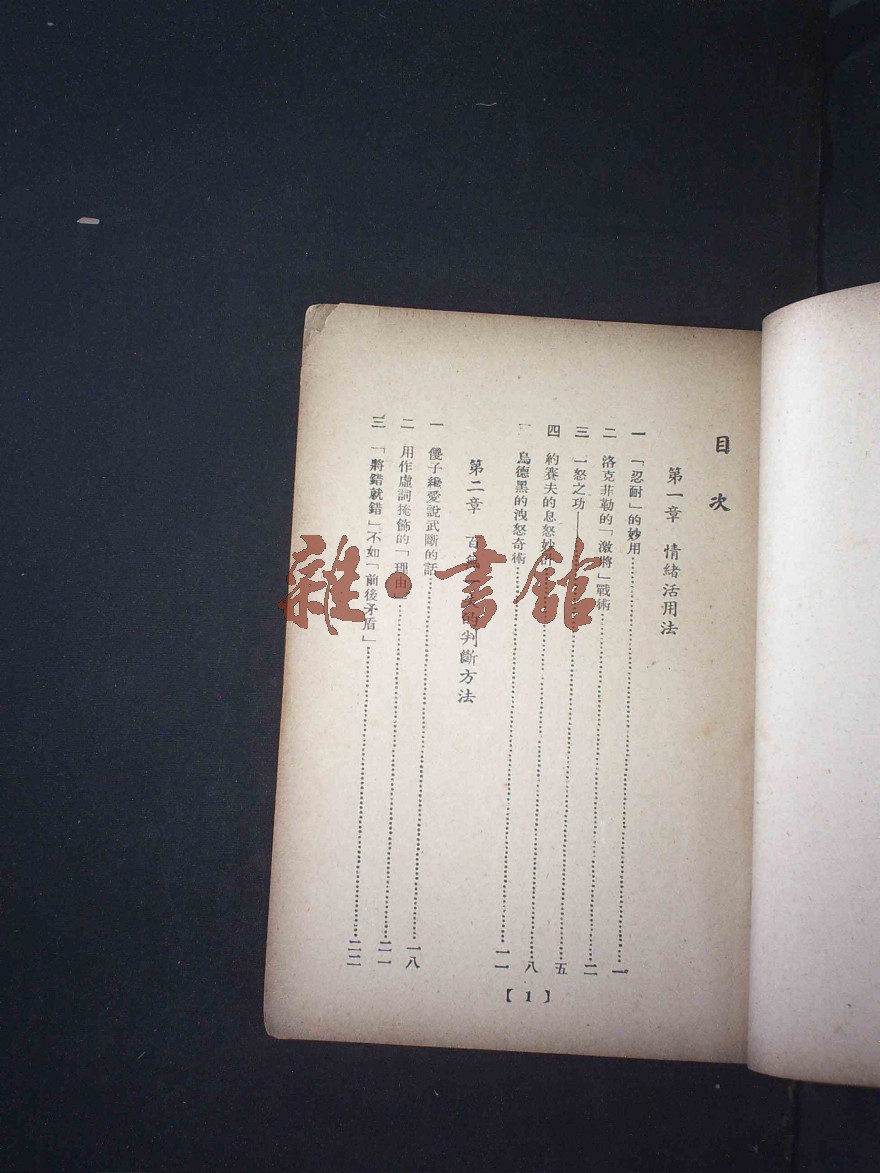 目次
第一章 情緒活用法
一 「忍耐」的妙用……一
二 洛克菲勒的「激將」戰術……二
三 一怒之功……五
四 約賽夫的息怒妙計……八
烏德黑的洩怒奇術……一一
第二章 百 的判斷方法
一 儍子纔愛說武斷的話……一八
二 用作虛詞掩飾的「理由」……二一
三 「將錯就錯」不如「前後矛盾」……二二
【1】
雜·書館